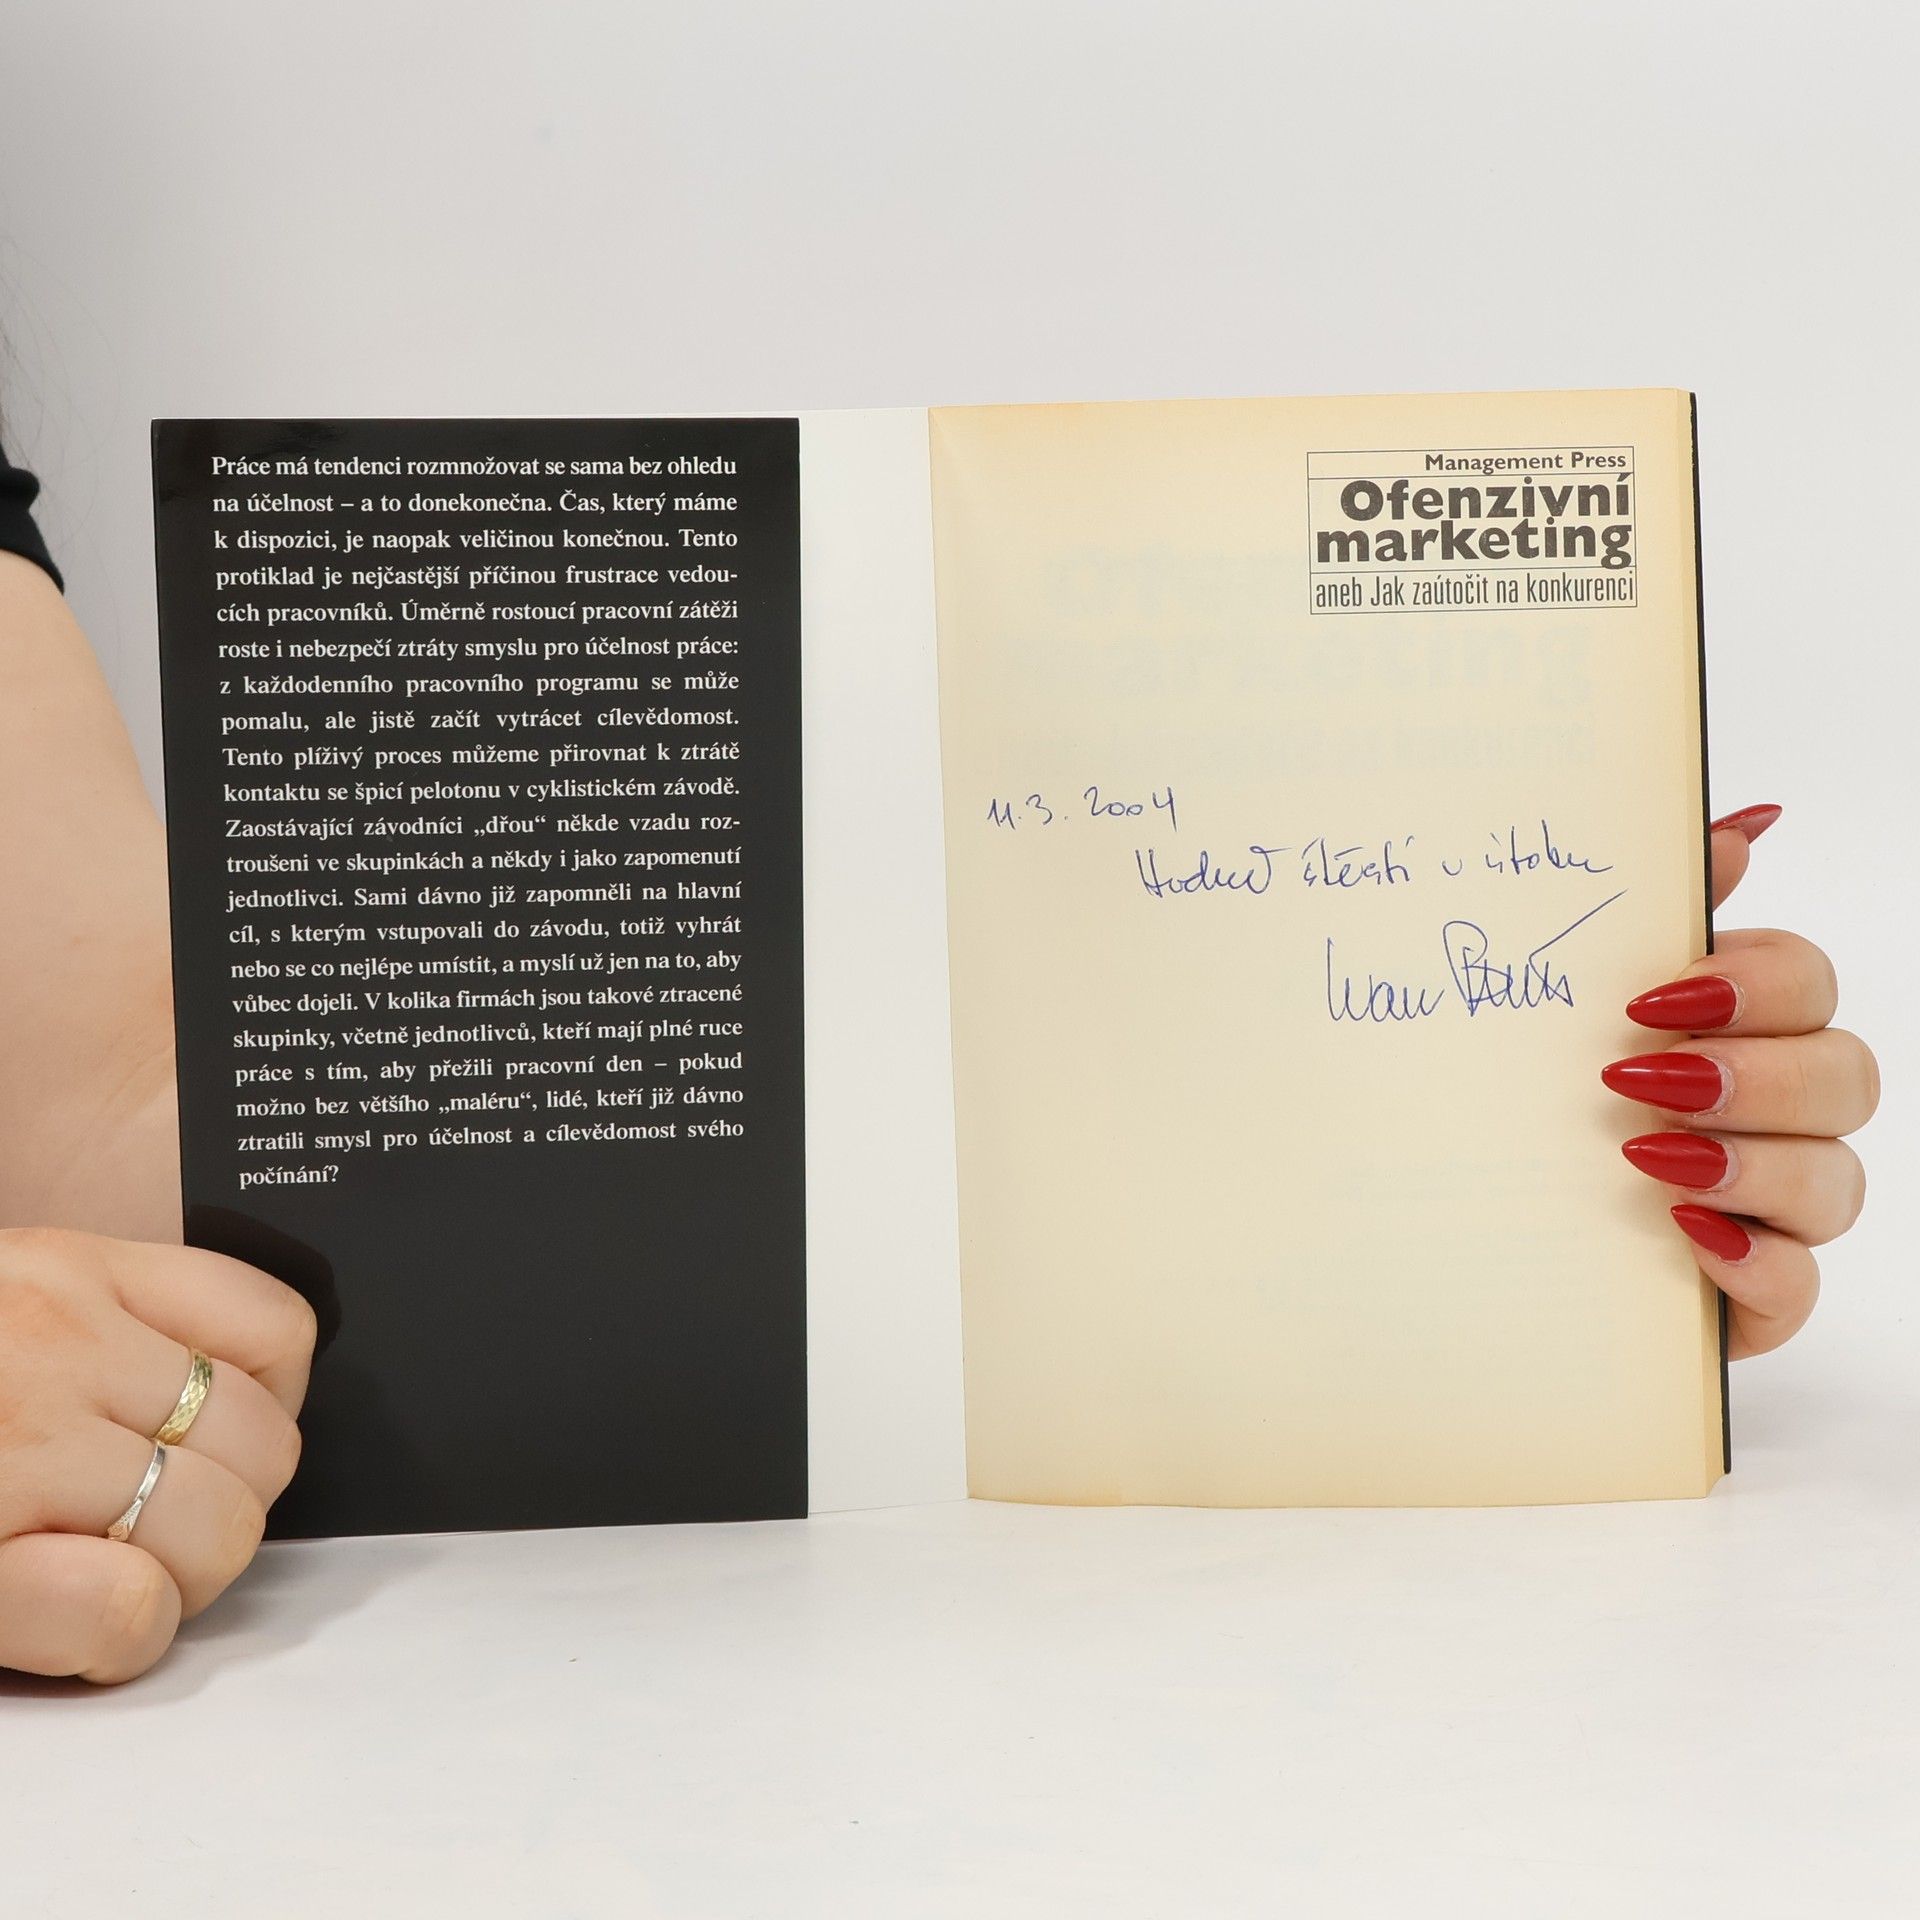 Práce má tendenci rozmnožovat se sama bez ohledu
na účelnost – a to donekonečna. Čas, který máme
k dispozici, je naopak veličinou konečnou. Tento
protiklad je nejčastější příčinou frustrace vedou-
cích pracovníků. Úměrně rostoucí pracovní zátěži
roste i nebezpečí ztráty smyslu pro účelnost práce:
z každodenního pracovního programu se může
pomalu, ale jistě začít vytrácet cílevědomost.
Tento plíživý proces můžeme přirovnat k ztrátě
kontaktu se špicí pelotonu v cyklistickém závodě.
Zaostávající závodníci „dřou“ někde vzadu roz-
troušeni ve skupinkách a někdy i jako zapomenutí
jednotlivci. Sami dávno již zapomněli na hlavní
cíl, s kterým vstupovali do závodu, totiž vyhrát
nebo se co nejlépe umístit, a myslí už jen na to, aby
vůbec dojeli. V kolika firmách jsou takové ztracené
skupinky, včetně jednotlivců, kteří mají plné ruce
práce s tím, aby přežili pracovní den – pokud
možno bez většího „maléru“, lidé, kteří již dávno
ztratili smysl pro účelnost a cílevědomost svého
počínání?
Management Press
Ofenzivní
marketing
aneb Jak zaútočit na konkurenci
11.3. 2004
štěstí v útoku
Ivan